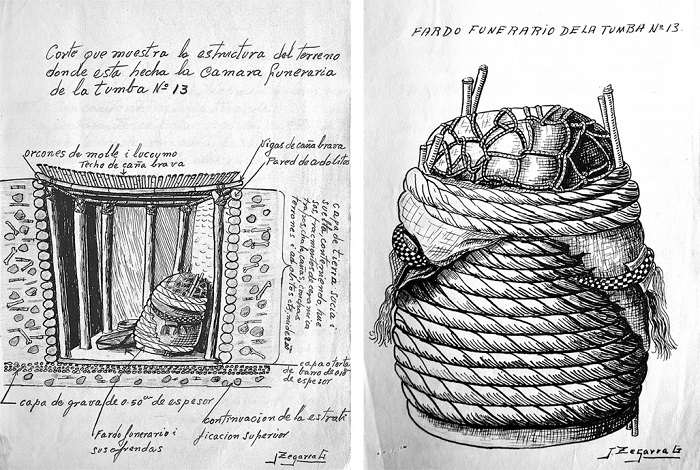 Corte que muestra la estructura del terreno
donde esta hecha la Camara funeraria
de la tumba Nº 13
orcones de molle i lucumo
Techo de caña brava
Vigas de caña brava
Pared de adobitos
capa de tierra sucia i
suelta conteniendo hue
sos, fragmentos de ceramica
cañas, conchas
terrones i adobitos
capa o torta
de barro de
de espesor
capa de grava de 0.50 de espesor
continuacion de la estrati
ficacion superior
Fardo funerario i
sus ofrendas
J Zegarra G
FARDO FUNERARIO DE LA TUMBA Nº 13.
J Zegarra G